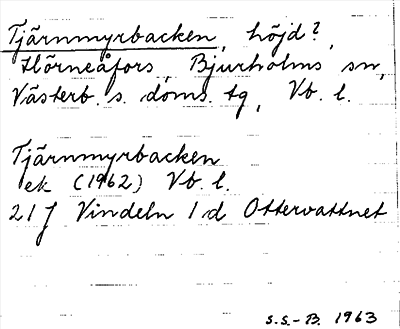 Tjärnmyrbacken, höjd?,
Hörneåfors, Bjurholms sn,
Västerb. s. doms. tg, Vb. l.
Tjärnmyrbacken
ek (1962) Vb. l.
21 J Vindeln 1 d Ottervattnet
S.S.-B. 1963